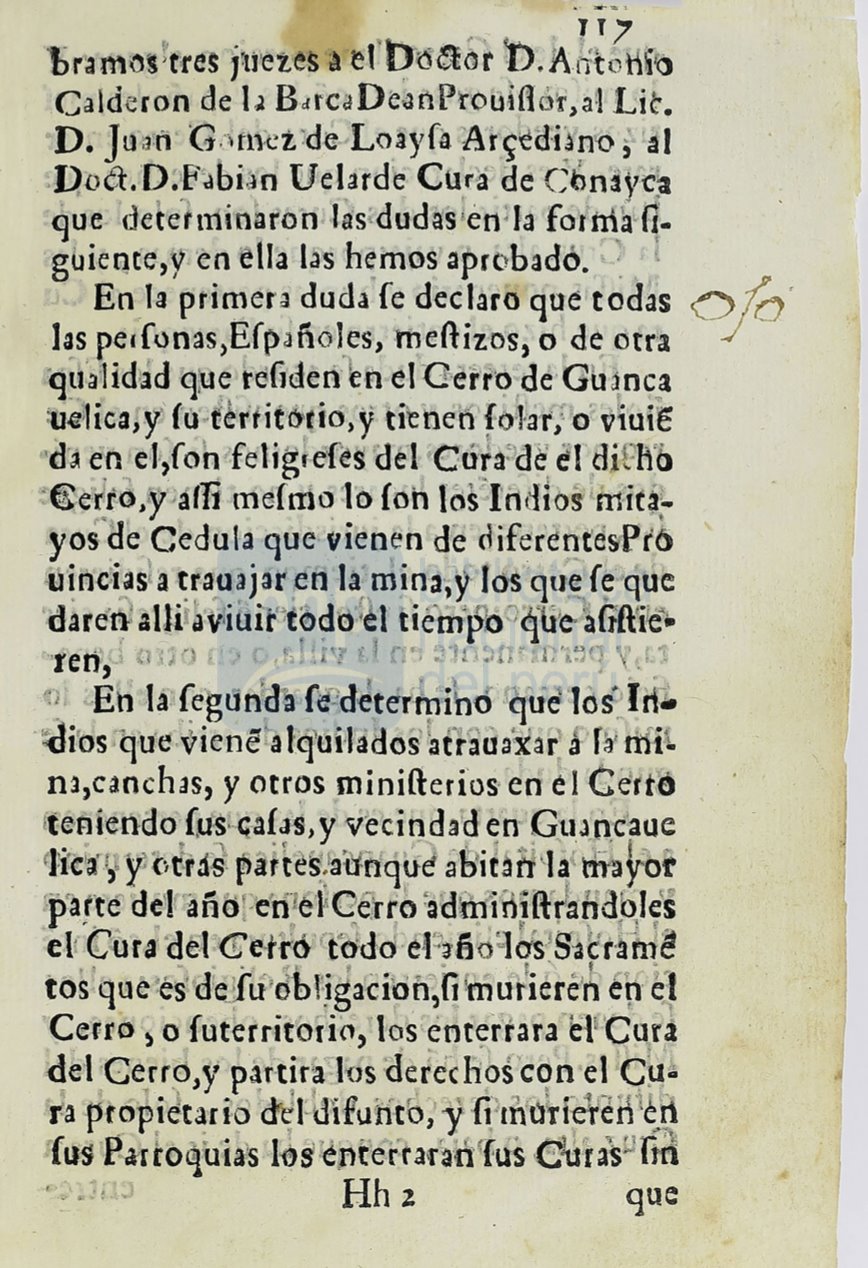 117
bramos tres juezes a el Doctor D. Antonio
Calderon de la BarcaDeanProuiſſor,al Lic.
D. Juan Gomez de Loayſa Arçediano, al
Doct.D.Fabian Uelarde Cura de Conayca
que determinaron las dudas en la forma ſi-
guiente,y en ella las hemos aprobado.
En la primera duda ſe declaro que todas
las perſonas,Eſpañoles, meſtizos, o de otra
qualidad que reſiden en el Cerro de Guanca
uelica,y ſu territorio,y tienen ſolar, o viuiē
da en el,ſon feligreſes del Cura de el dicho
Cerro,y aſſi meſmo lo ſon los Indios mita-
yos de Cedula que vienen de diferentesPro
uincias a trauajar en la mina,y los que ſe que
daren alli aviuir todo el tiempo que aſiſtie-
ren,
En la ſegunda ſe determino que los In-
dios que vienē alquilados atrauaxar a la mi-
na,canchas, y otros miniſterios en el Cerro
teniendo ſus caſas,y vecindad en Guancaue
lica, y otras partes.aunque abitan la mayor
parte del año en el Cerro adminiſtrandoles
el Cura del Cerro todo el año los Sacramē
tos que es de ſu obligacion,ſi murieren en el
Cerro , o ſuterritorio, los enterrara el Cura
del Cerro,y partira los derechos con el Cu-
ra propietario del difunto, y ſi murieren en
ſus Parroquias los enterraran ſus Curas ſin
Hh 2 que